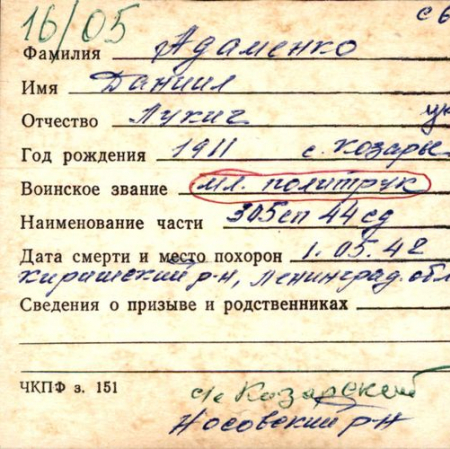 16/05 с в
Фамилия Адаменко
Имя Даниил
Отчество Лукич
Год рождения 1911 с. Козары
Воинское звание мл. политрук
Наименование части 305сп 44сд
Дата смерти и место похорон 1.05.42
Киришский р-н, Ленинград. обл
Сведения о призыве и родственниках
ЧКПФ з. 151
Козарской
Носовский р-н